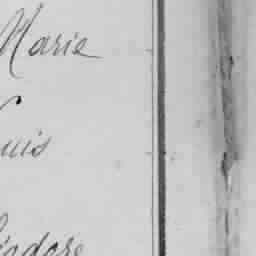 Marie
uis
iodore